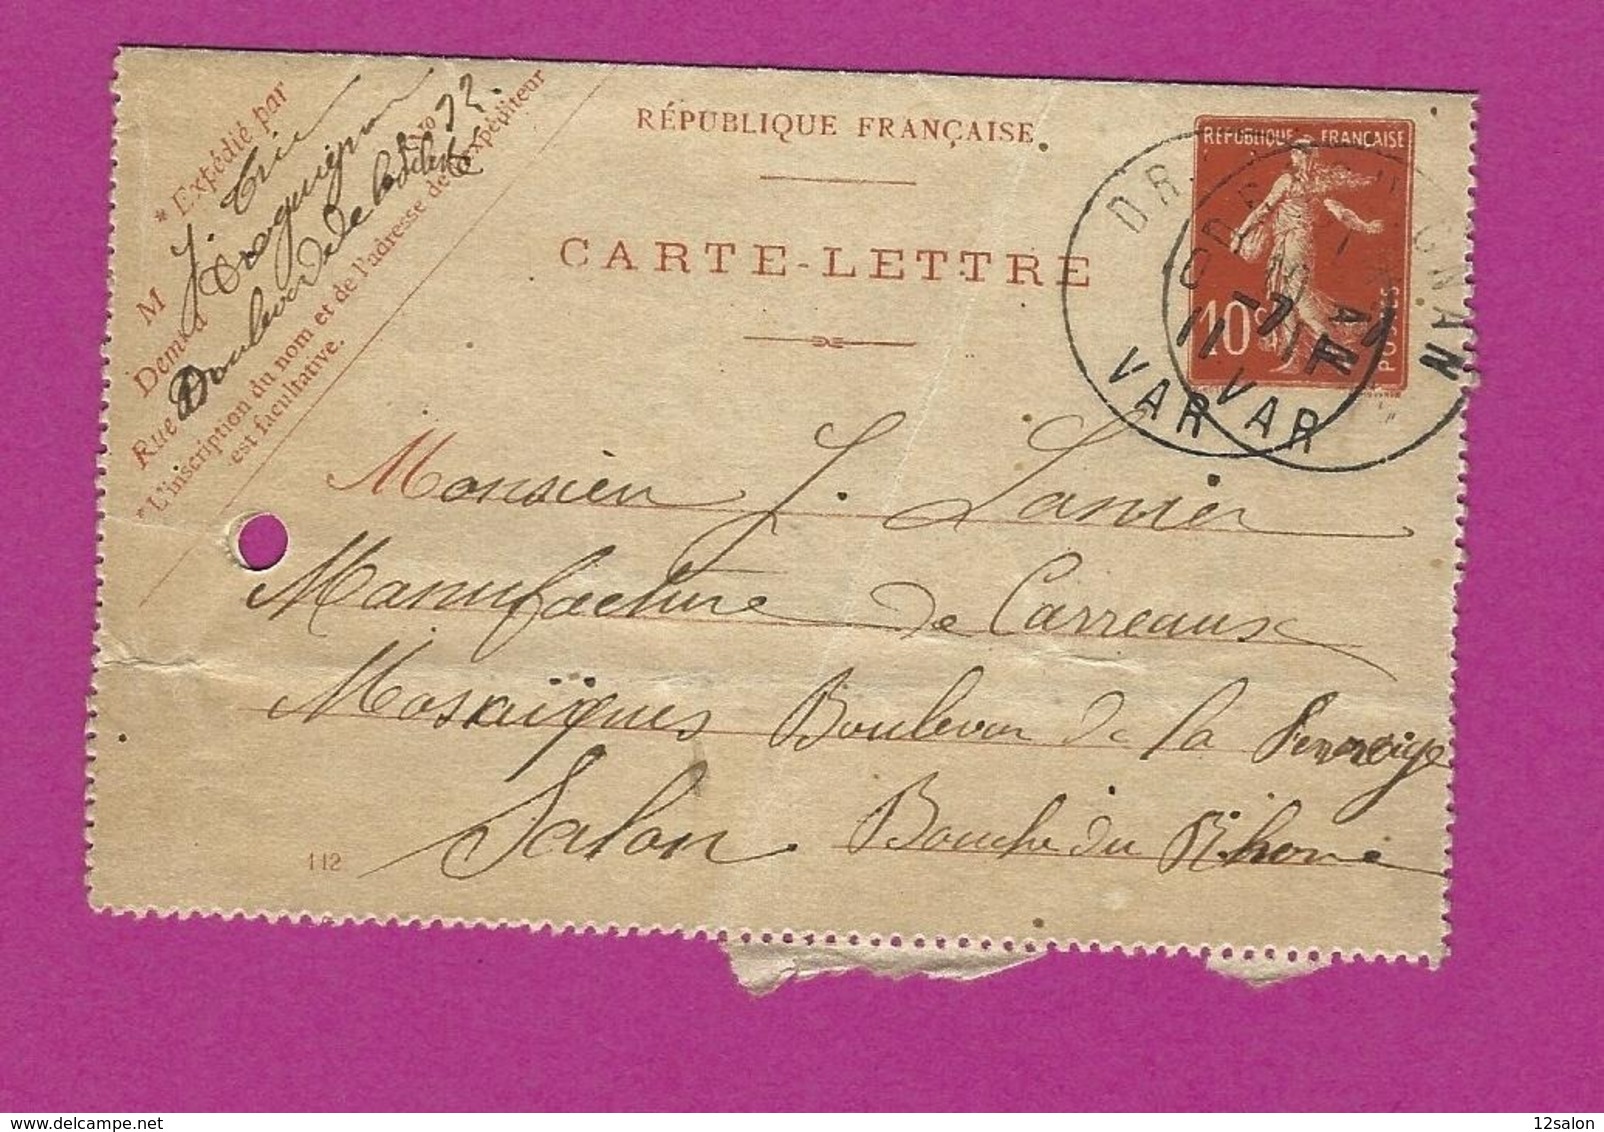 * Expédié par
M J. Tric
Demt à Draguignan
Rue Boulevard de la No 72.
* L'inscription du nom et de l'adresse de l'expéditeur
est facultative.
RÉPUBLIQUE FRANÇAISE.
CARTE-LETTRE
RÉPUBLIQUE FRANÇAISE
10c
POSTES
DRAGUIGNAN
VAR
VAR
Monsieur J. Lanier
Manufacture de Carreaux
Mosaïques Boulevar de la
Salon. Bouche du Rhone
112
12salon